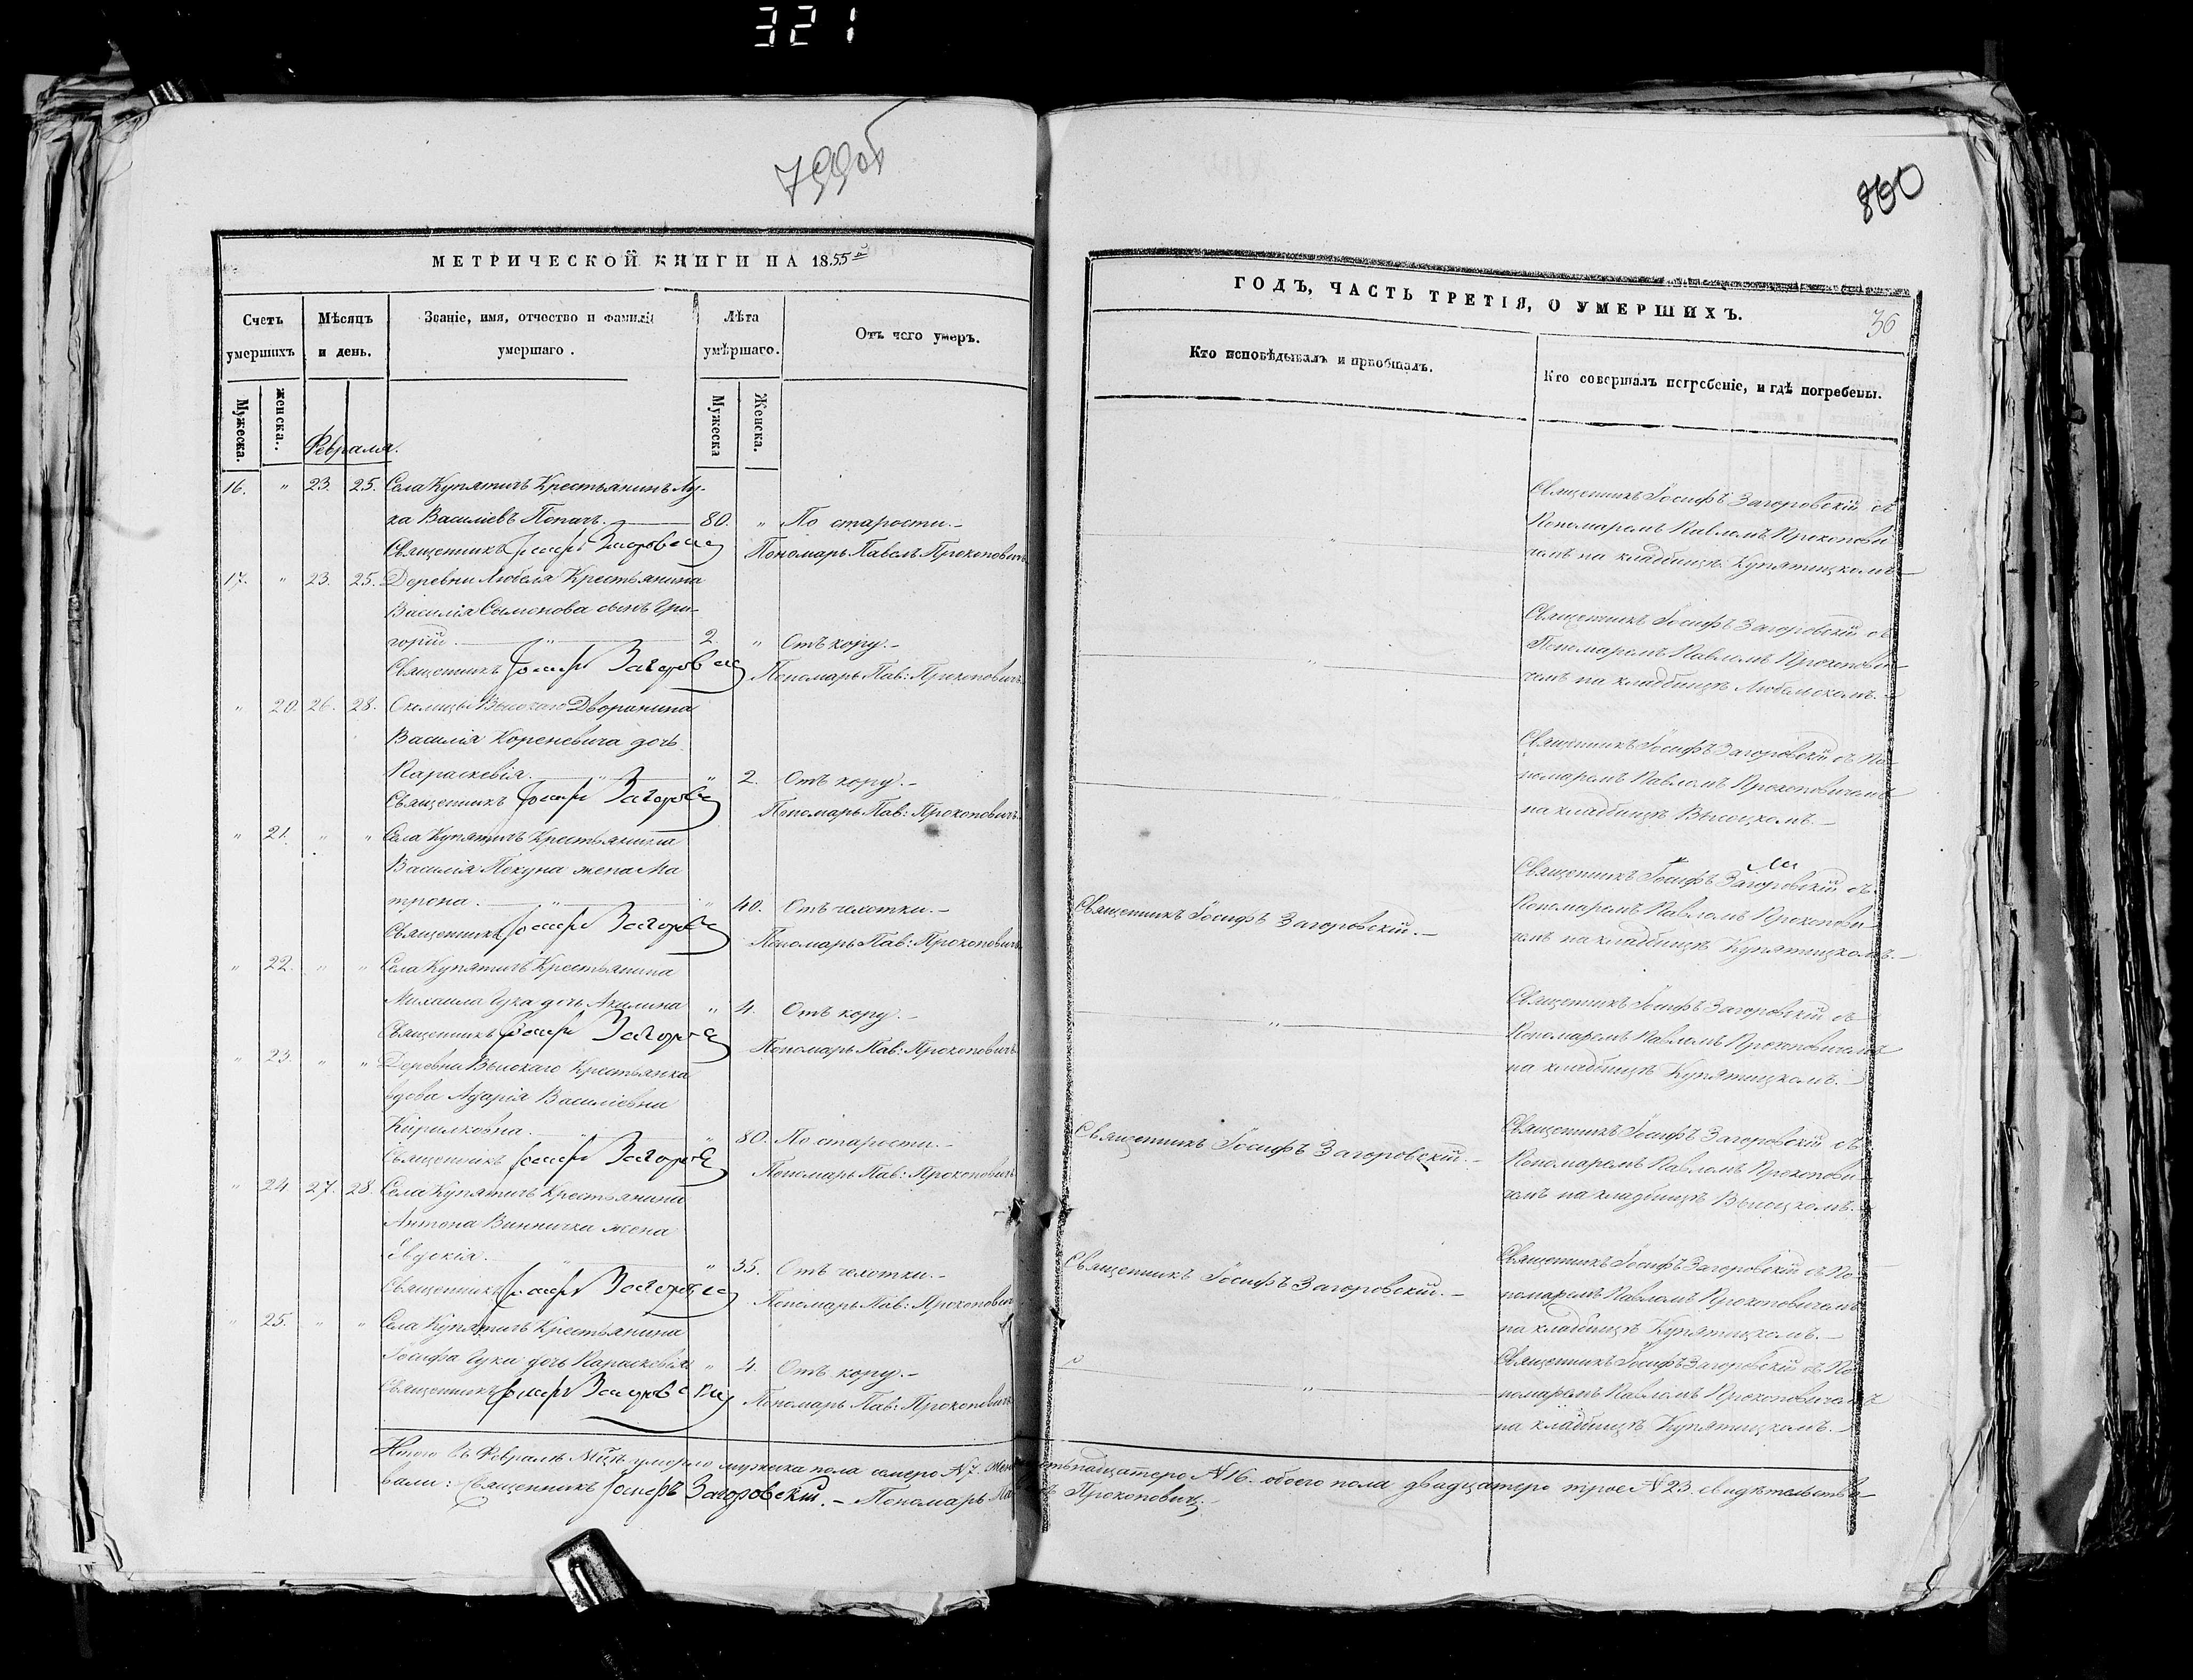 321
799об
800
МЕТРИЧЕСКОЙ КНИГИ НА 1855й
ГОДЪ, ЧАСТЬ ТРЕТІЯ, О УМЕРШИХЪ.
36
Счетъ умершихъ
Мѣсяцъ и день.
Званіе, имя, отчество и фамилія умершаго.
Лѣта умѣршаго.
Отъ чего умеръ.
Кто исповѣдывалъ и пріобщалъ.
Кто совершалъ погребеніе, и гдѣ погребены.
Мужеска.
женска.
Мужеска
Женска.
Февраля.
16. " 23. 25. Села Купятичъ Крестьянинъ Лу-
ка Василіевъ Попачъ. 80. " По старости.
Священникъ Іосифъ Загоровскій Пономарь Павелъ Прокоповичъ
Священникъ Іосифъ Загоровскій съ
Пономаремъ Павломъ Прокопови
чемъ на кладбищѣ Купятицкомъ
17. " 23. 25. Деревни Любеля Крестьянина
Василія Сымонова сынъ Гри-
горій. " 2. " Отъ кору.
Священникъ Іосифъ Загоровскій Пономарь Пав: Прокоповичъ
Священникъ Іосифъ Загоровскій съ
Пономаремъ Павломъ Прокопови
чемъ на кладбищѣ Любельскомъ.
" 20. 26. 28. Околицы Высокаго Дворянина
Василія Кореневича дочь
Параскевія. " " 2. Отъ кору.
Священникъ Іосифъ Загоровскій Пономарь Пав: Прокоповичъ
Священникъ Іосифъ Загоровскій съ По
номаремъ Павломъ Прокоповичемъ
на кладбищѣ Высоцкомъ.
" 21. " " Села Купятичъ Крестьянина
Василія Пекуна жена Ма
трона. " " 40. Отъ чехотки.
Священникъ Іосифъ Загоровскій Пономарь Пав: Прокоповичъ
Священникъ Іосифъ Загоровскій.
Священникъ Іосифъ Загоровскій съ
Пономаремъ Павломъ Прокопови
чемъ на кладбищѣ Купятицкомъ.
" 22. " " Села Купятичъ Крестьянина
Михаила Гука дочь Акилина " 4. Отъ кору.
Священникъ Іосифъ Загоровскій Пономарь Пав: Прокоповичъ
Священникъ Іосифъ Загоровскій съ
Пономаремъ Павломъ Прокоповичемъ
на кладбищѣ Купятицкомъ.
" 23. " " Деревни Высокаго Крестьянка
вдова Адарія Василіевна
Кирилковна. " 80. По старости.
Священникъ Іосифъ Загоровскій Пономарь Пав: Прокоповичъ
Священникъ Іосифъ Загоровскій.
Священникъ Іосифъ Загоровскій съ
Пономаремъ Павломъ Прокопови
чемъ на кладбищѣ Высоцкомъ.
" 24 27. 28. Села Купятичъ Крестьянина
Антона Винничка жена
Евдокія. " " 35. Отъ чехотки.
Священникъ Іосифъ Загоровскій Пономарь Пав: Прокоповичъ
Священникъ Іосифъ Загоровскій.
Священникъ Іосифъ Загоровскій съ По-
номаремъ Павломъ Прокоповичемъ
на кладбищѣ Купятицкомъ.
" 25. " " Села Купятичъ Крестьянина
Іосифа Гуки дочь Параскевія " 4. Отъ кору.
Священникъ Іосифъ Загоровскій Пономарь Пав: Прокоповичъ
Священникъ Іосифъ Загоровскій съ По
номаремъ Павломъ Прокоповичемъ
на кладбищѣ Купятицкомъ.
Итого въ Февралѣ Мцѣ умерло мужеска пола семеро № 7. шестьнадцатеро № 16. обоего пола двадцатеро трое № 23. свидѣтельство-
вали: Священникъ Іосифъ Загоровскій. Пономарь Прокоповичъ.